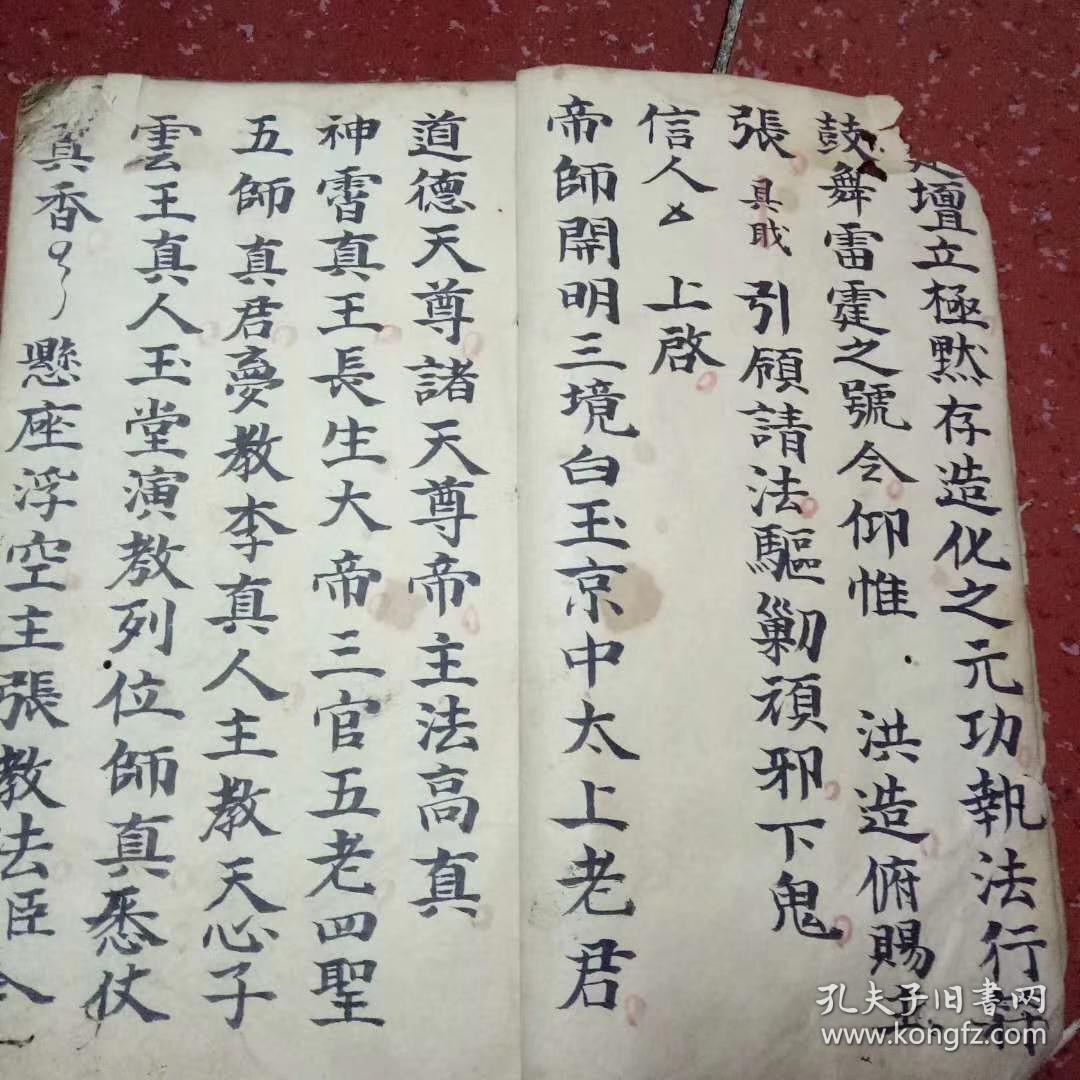 壇立極默存造化之元功執法行
鼓舞雷霆之號令仰惟 洪造俯賜
張 具戢 引領請法驅剿頑邪下鬼
信人 上啓
帝師開明三境白玉京中太上老君
道德天尊諸天尊帝主法高真
神霄真王長生大帝三官五老四聖
五師真君夣教李真人主教天心子
雲王真人玉堂演教列位師真悉仗
真香 懸座浮空主張教法臣
孔夫子旧书网
www.kongfz.com